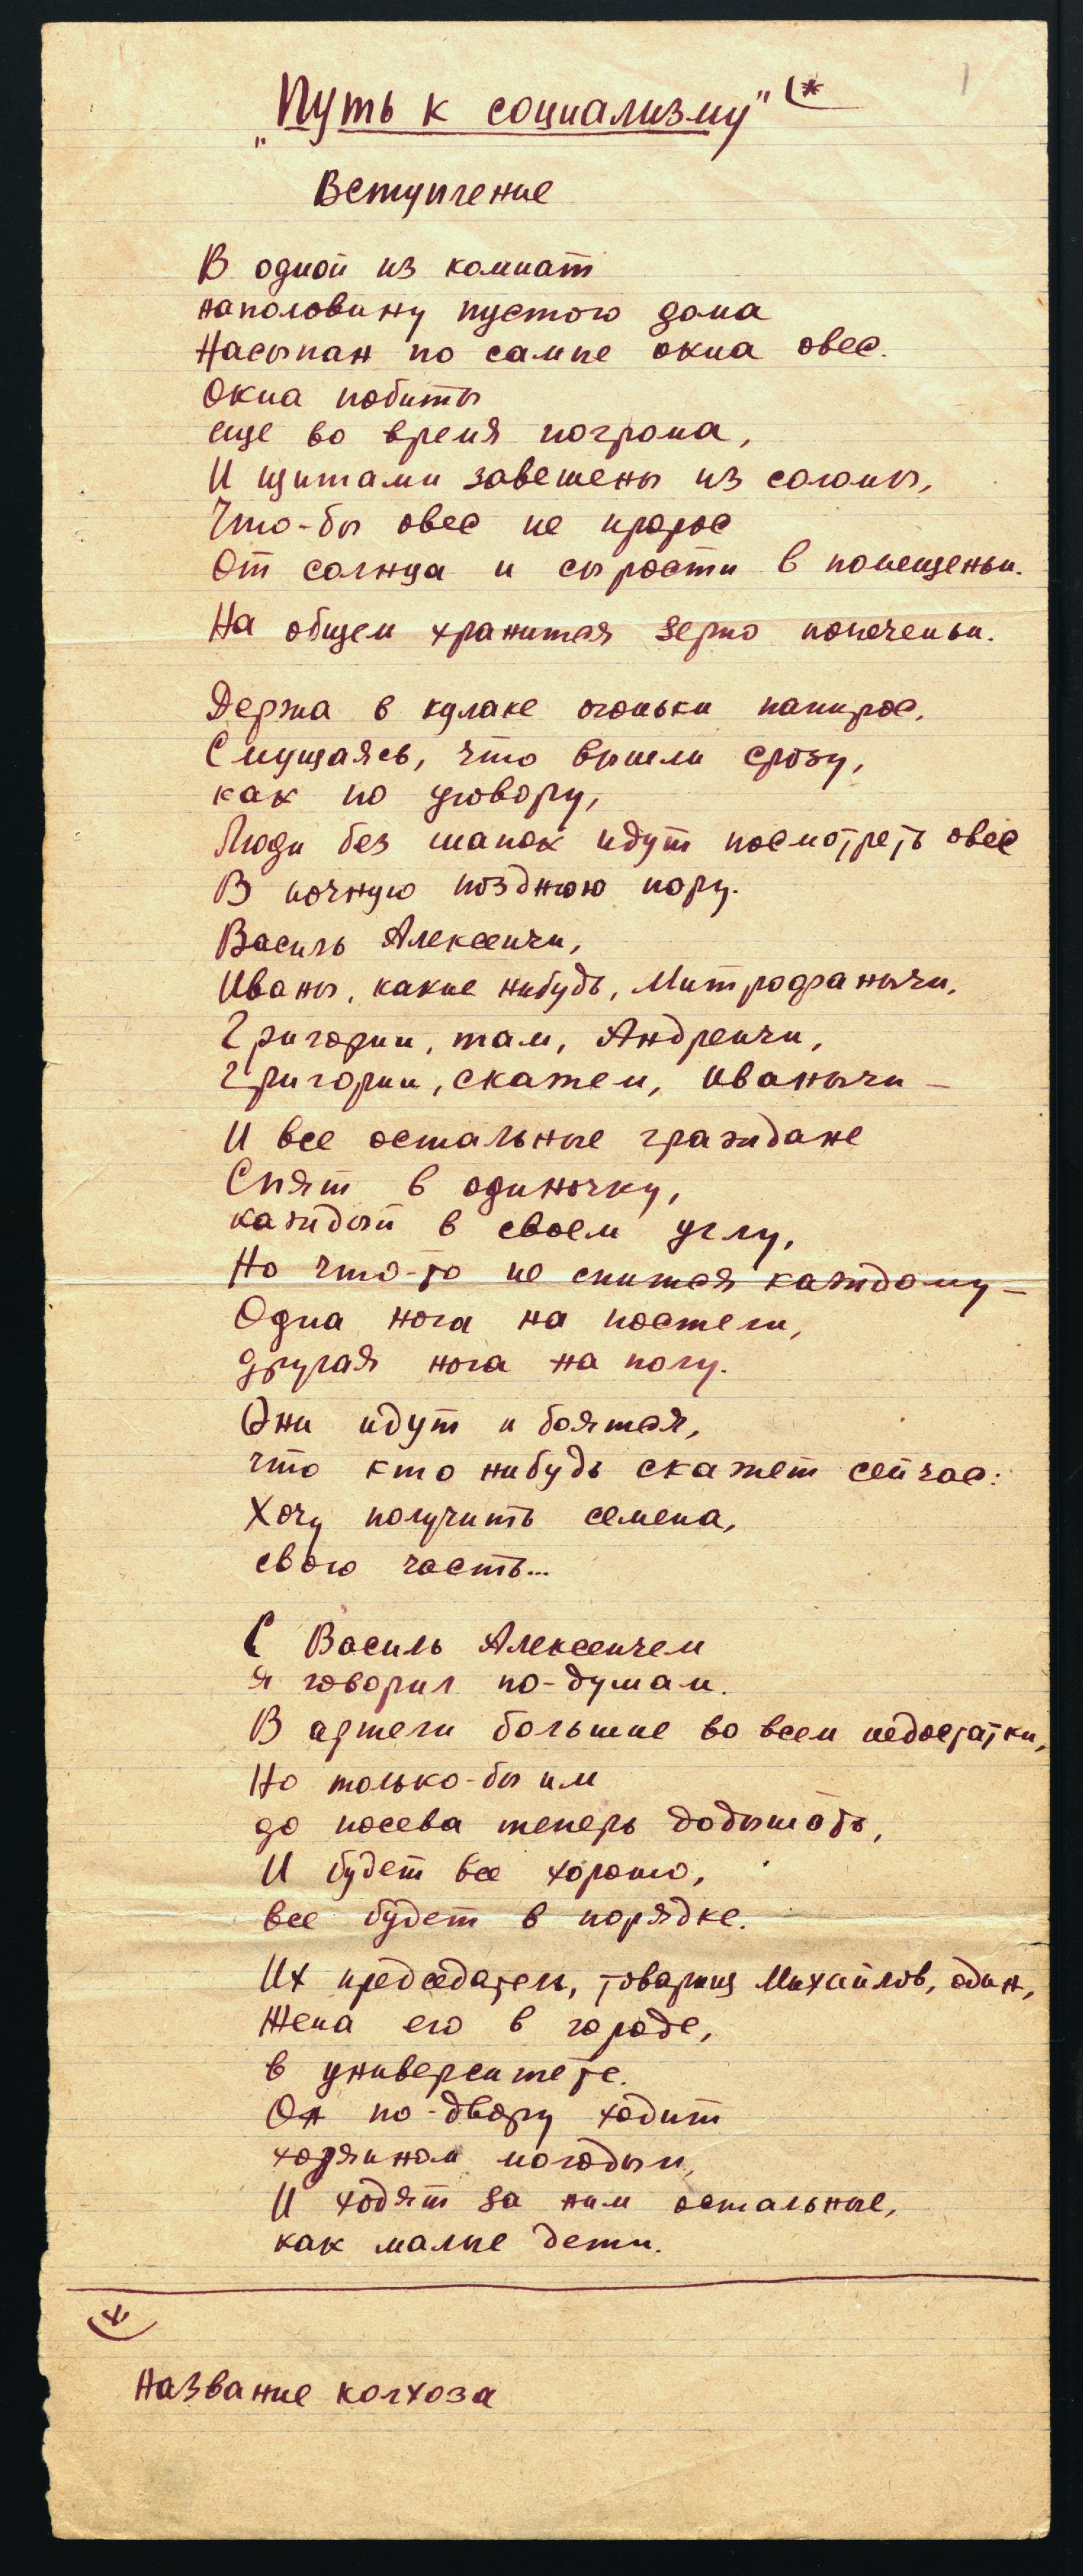 1
„Путь к социализму" (*
Вступление
В одной из комнат
наполовину пустого дома
Насыпан по самые окна овес.
Окна побиты
еще во время погрома,
И щитами завешены из соломы,
Что-бы овес не пророс
От солнца и сырости в помещеньи.
На общем хранится зерно попеченьи.
Держа в кулаке огоньки папирос,
Смущаясь, что вышли сразу,
как по уговору,
Люди без шапок идут посмотреть овес
В ночную позднюю пору.
Василь Алексеичи,
Иваны, какие нибудь, Митрофанычи,
Григории, там, Андреичи,
Григории, скажем, Иванычи —
И все остальные граждане
Спят в одиночку,
каждый в своем углу,
Но что-то не спится каждому —
Одна нога на постели,
другая нога на полу.
Они идут и боятся,
что кто нибудь скажет сейчас:
Хочу получить семена,
свою часть...
С Василь Алексеичем
я говорил по-думам.
В артели большие во всем недостатки,
Но только-бы им
до посева теперь додышать,
И будет все хорошо,
все будет в порядке.
Их председатель, товарищ Михайлов, один,
Жена его в городе,
в университете.
Он по-двору ходит
хозяином молодым,
И ходят за ним остальные,
как малые дети.
(*)
Название колхоза